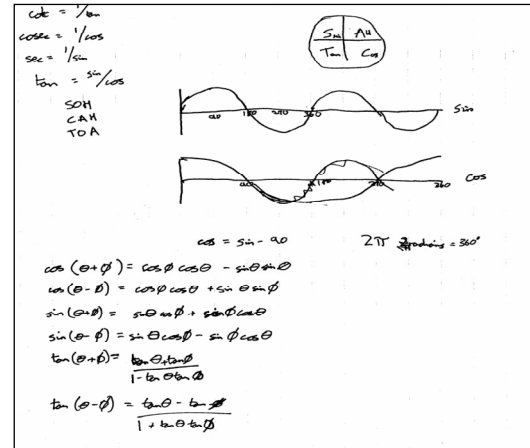 cot = 1/tan
cosec = 1/cos
sec = 1/sin
tan = sin/cos
SOH
CAH
TOA
Sin All
Tan Cos
90 180 270 360 Sin
90 180 270 360 cos
cos = sin - 90
2π radians = 360°
cos (θ+φ) = cosφ cosθ - sinθ sinθ
cos (θ-φ) = cosφ cosθ + sinθ sinφ
sin (θ+φ) = sinθ cosφ + sinφ cosθ
sin (θ-φ) = sinθ cosφ - sinφ cosθ
tan (θ+φ) = tanθ+tanφ
1-tanθtanφ
tan (θ-φ) = tanθ - tanφ
1+tanθtanφ